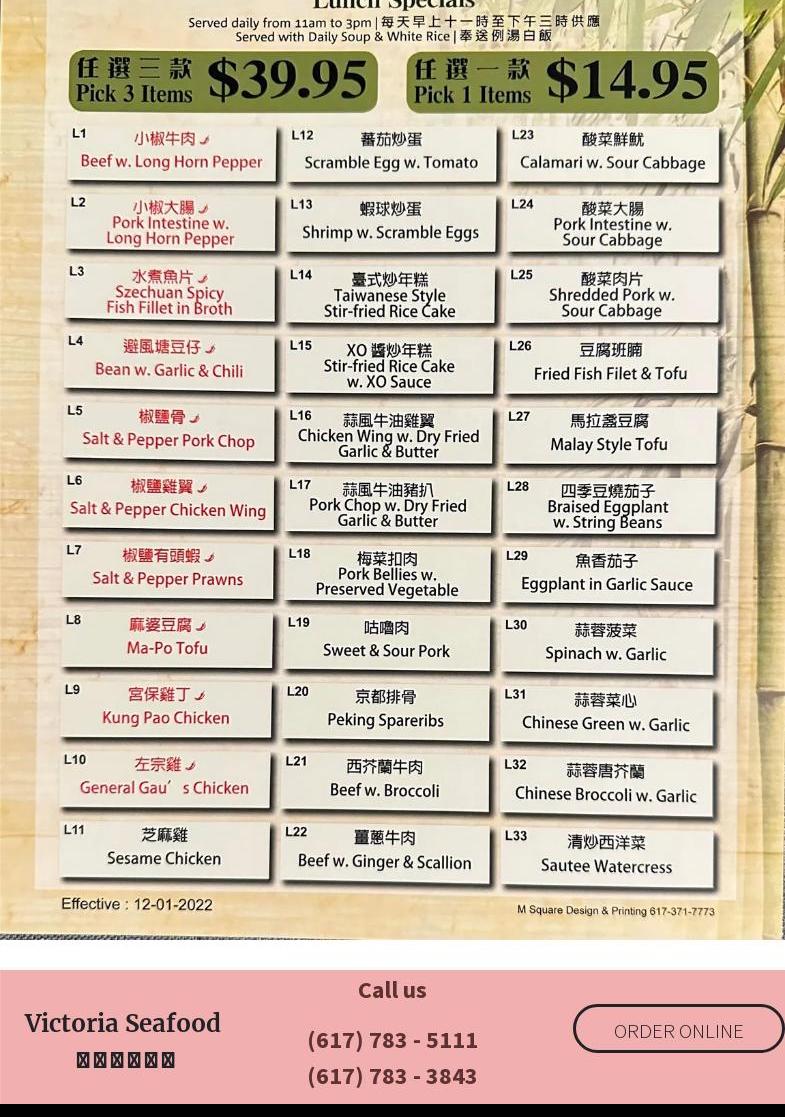 Lunch Specials
Served daily from 11am to 3pm|每天早上十一時至下午三時供應
Served with Daily Soup & White Rice|奉送例湯白飯
任選三款
Pick 3 Items
$39.95
任選一款
Pick 1 Items
$14.95
L1
小椒牛肉
Beef w. Long Horn Pepper
L2
小椒大腸
Pork Intestine w.
Long Horn Pepper
L3
水煮魚片
Szechuan Spicy
Fish Fillet in Broth
L4
避風塘豆仔
Bean w. Garlic & Chili
L5
椒鹽骨
Salt & Pepper Pork Chop
L6
椒鹽雞翼
Salt & Pepper Chicken Wing
L7
椒鹽有頭蝦
Salt & Pepper Prawns
L8
麻婆豆腐
Ma-Po Tofu
L9
宮保雞丁
Kung Pao Chicken
L10
左宗雞
General Gau's Chicken
L11
芝麻雞
Sesame Chicken
L12
蕃茄炒蛋
Scramble Egg w. Tomato
L13
蝦球炒蛋
Shrimp w. Scramble Eggs
L14
臺式炒年糕
Taiwanese Style
Stir-fried Rice Cake
L15
XO 醬炒年糕
Stir-fried Rice Cake
w. XO Sauce
L16
蒜風牛油雞翼
Chicken Wing w. Dry Fried
Garlic & Butter
L17
蒜風牛油豬扒
Pork Chop w. Dry Fried
Garlic & Butter
L18
梅菜扣肉
Pork Bellies w.
Preserved Vegetable
L19
咕嚕肉
Sweet & Sour Pork
L20
京都排骨
Peking Spareribs
L21
西芥蘭牛肉
Beef w. Broccoli
L22
薑蔥牛肉
Beef w. Ginger & Scallion
L23
酸菜鮮魷
Calamari w. Sour Cabbage
L24
酸菜大腸
Pork Intestine w.
Sour Cabbage
L25
酸菜肉片
Shredded Pork w.
Sour Cabbage
L26
豆腐班腩
Fried Fish Filet & Tofu
L27
馬拉盞豆腐
Malay Style Tofu
L28
四季豆燒茄子
Braised Eggplant
w. String Beans
L29
魚香茄子
Eggplant in Garlic Sauce
L30
蒜蓉菠菜
Spinach w. Garlic
L31
蒜蓉菜心
Chinese Green w. Garlic
L32
蒜蓉唐芥蘭
Chinese Broccoli w. Garlic
L33
清炒西洋菜
Sautee Watercress
Effective : 12-01-2022
M Square Design & Printing 617-371-7773
Victoria Seafood
Call us
(617) 783 - 5111
(617) 783 - 3843
ORDER ONLINE